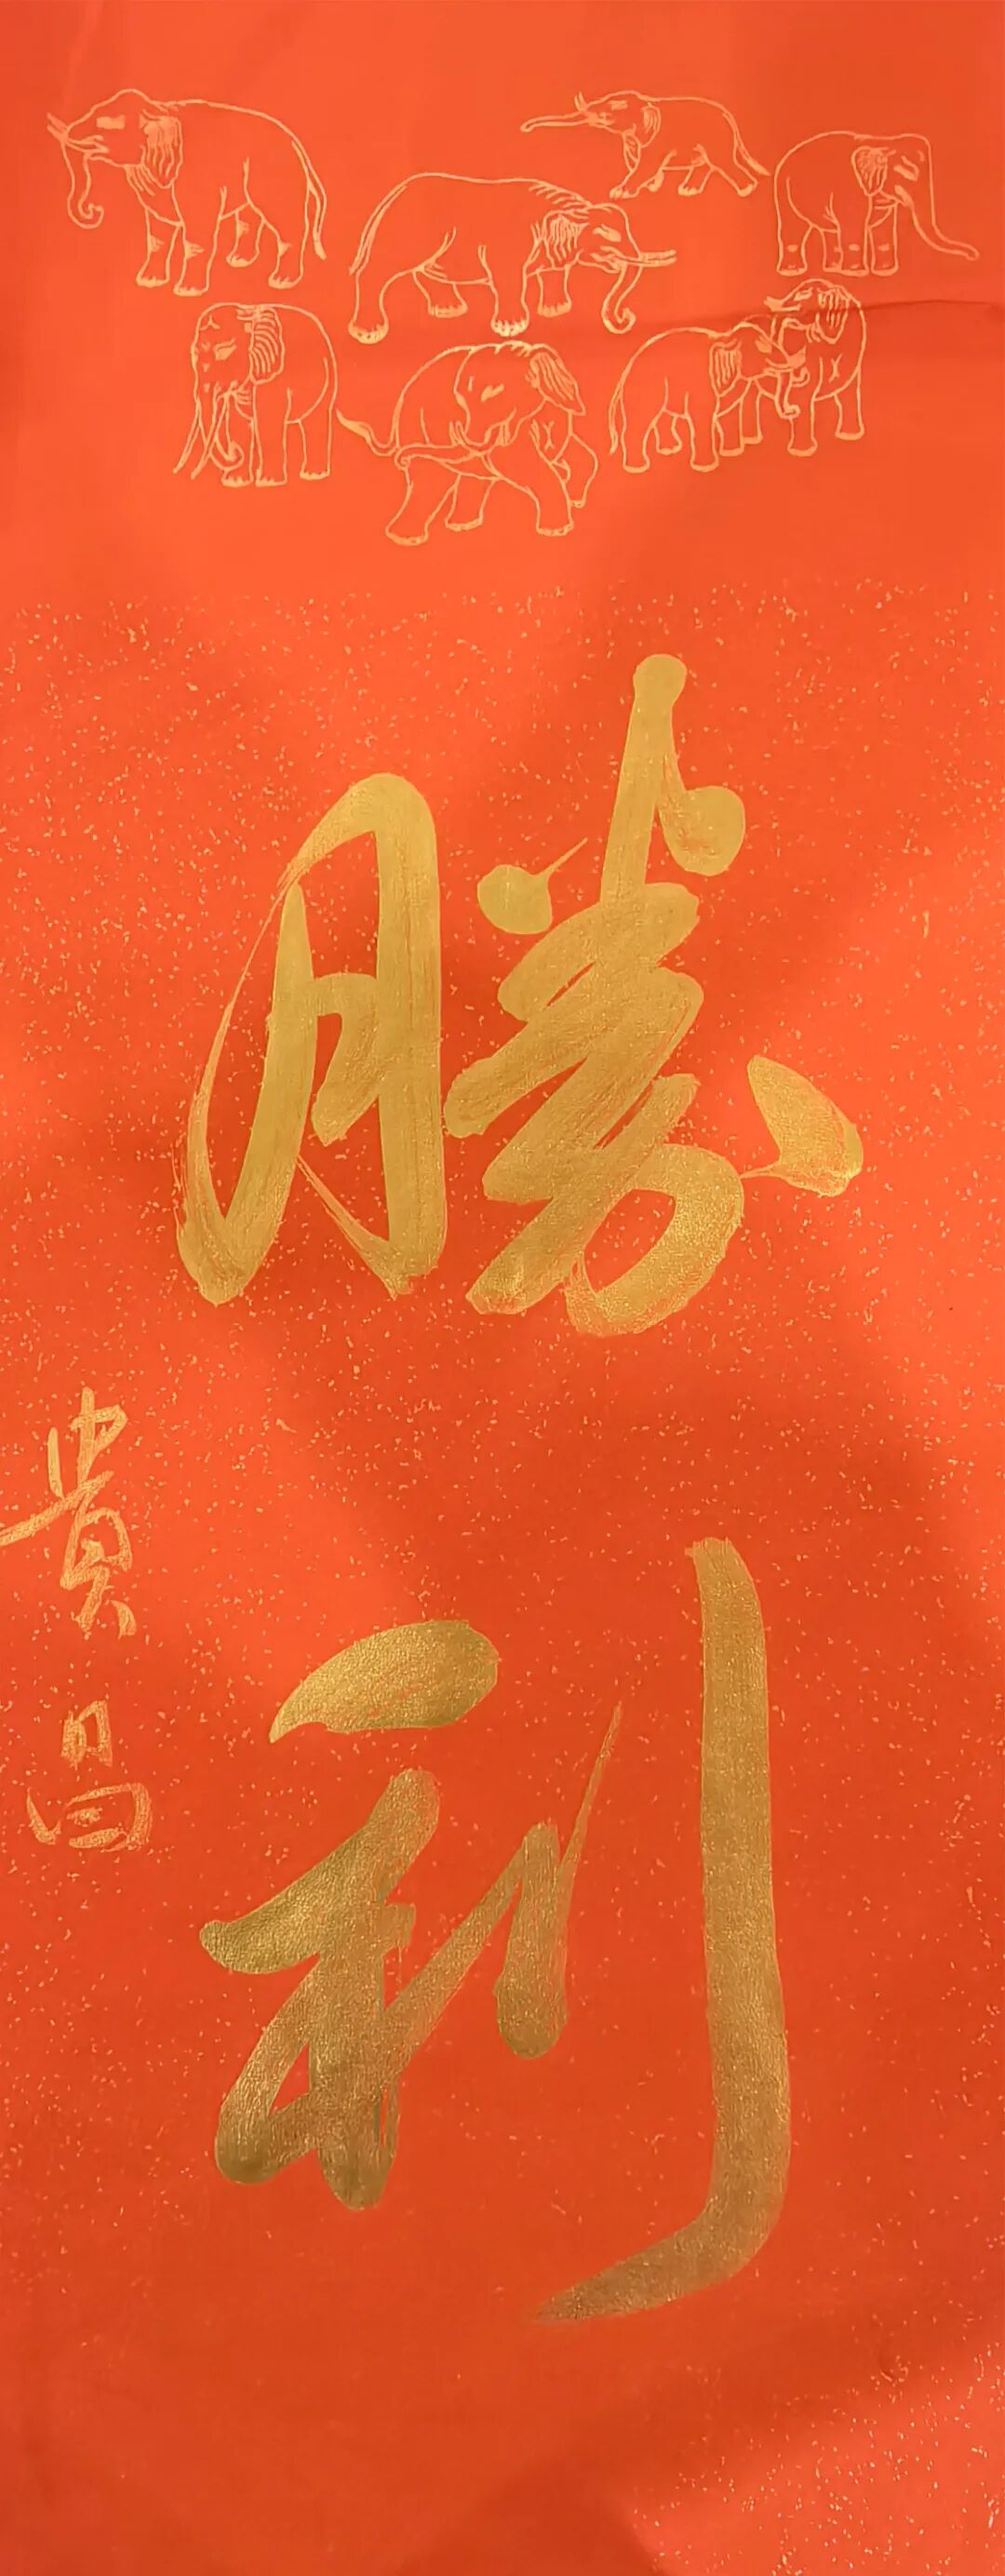 勝利
貴昌